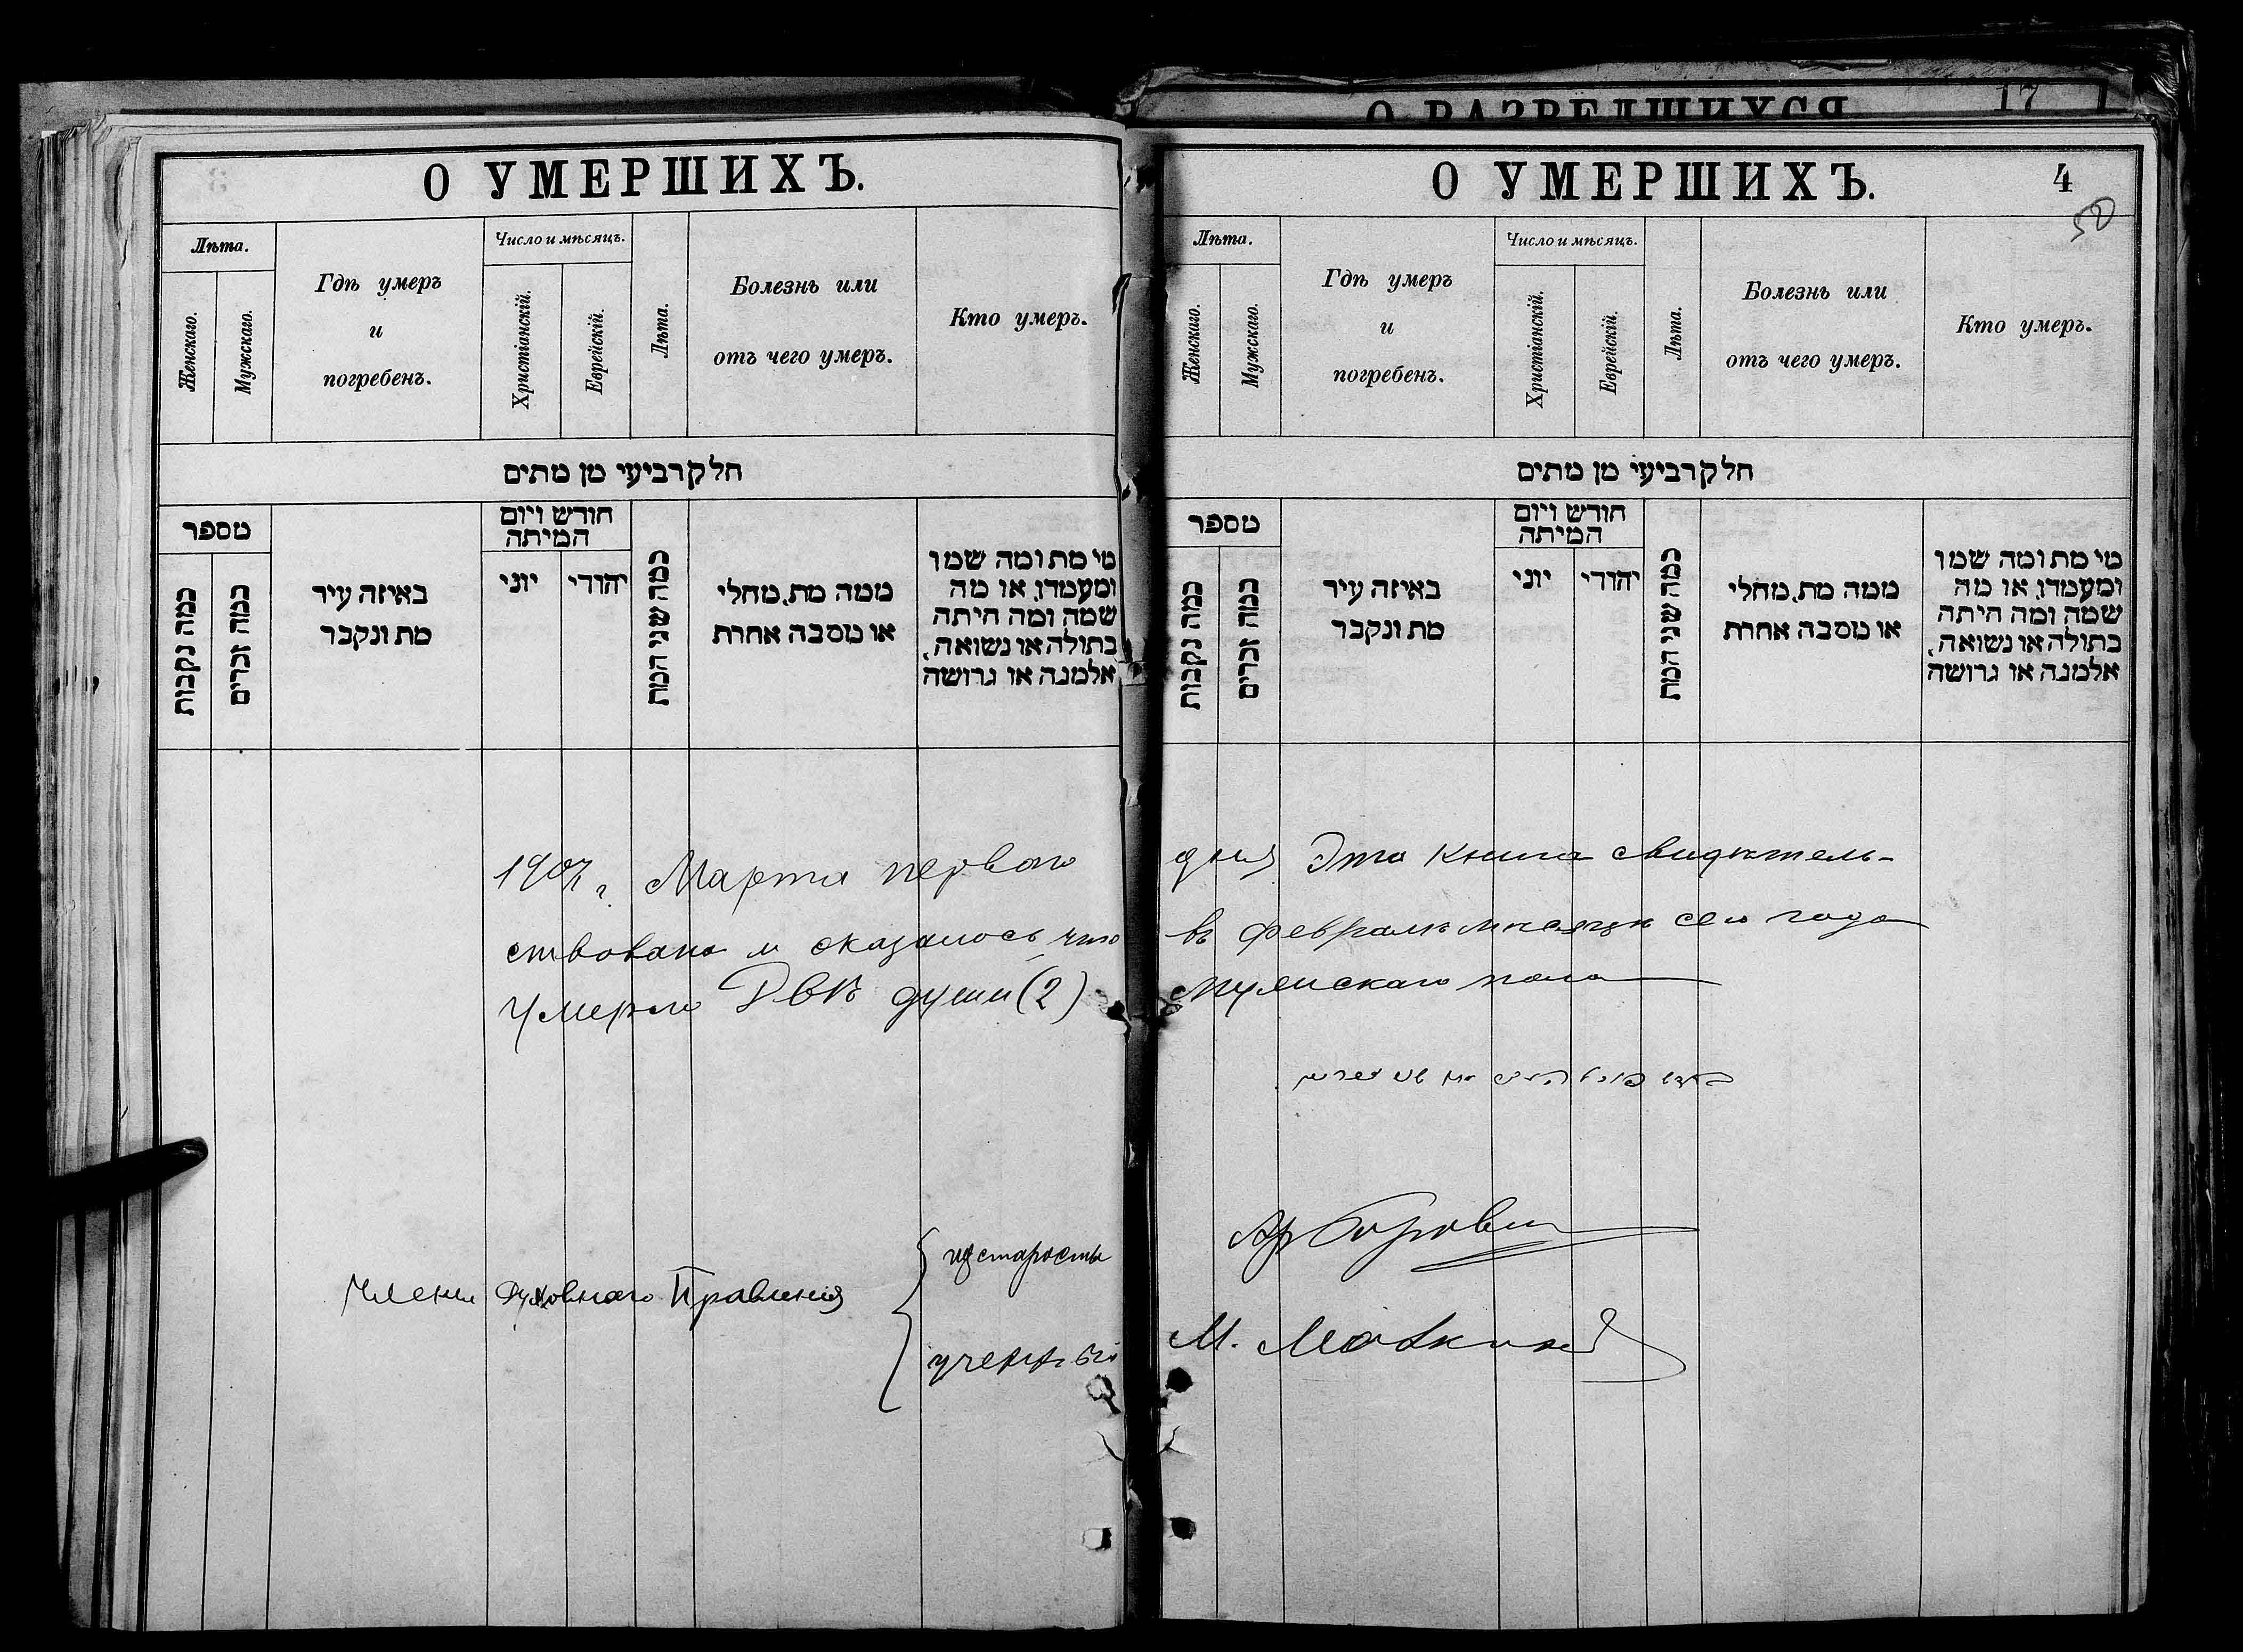 О РАЗВЕДШИХСЯ
17
О УМЕРШИХЪ.
Лѣта.
Женскаго.
Мужскаго.
Гдѣ умеръ
и
погребенъ.
Число и мѣсяцъ.
Христіанскій.
Еврейскій.
Лѣта.
Болезнь или
отъ чего умеръ.
Кто умеръ.
חלק רביעי מן מתים
מספר
כמה נקבות
כמה זכרים
באיזה עיר
מת ונקבר
חודש ויום
המיתה
יוני
יהודי
כמה שני המת
ממה מת, מחלי
או מסבה אחרת
מי מת ומה שמו
ומעמדו, או מה
שמה ומה היתה
בתולה או נשואה,
אלמנה או גרושה
О УМЕРШИХЪ.
4
50
Лѣта.
Женскаго.
Мужскаго.
Гдѣ умеръ
и
погребенъ.
Число и мѣсяцъ.
Христіанскій.
Еврейскій.
Лѣта.
Болезнь или
отъ чего умеръ.
Кто умеръ.
חלק רביעי מן מתים
מספר
כמה נקבות
כמה זכרים
באיזה עיר
מת ונקבר
חודש ויום
המיתה
יוני
יהודי
כמה שני המת
ממה מת, מחלי
או מסבה אחרת
מי מת ומה שמו
ומעמדו, או מה
שמה ומה היתה
בתולה או נשואה,
אלמנה או גרושה
1907 г. Марта перваго дня Эта книга свидѣтель-
ствована и оказалось что въ Февралѣ мѣсяцѣ сего года
умерло Двѣ души (2) мужскаго пола
Члены Духовнаго Правленія
староста
ученый М.